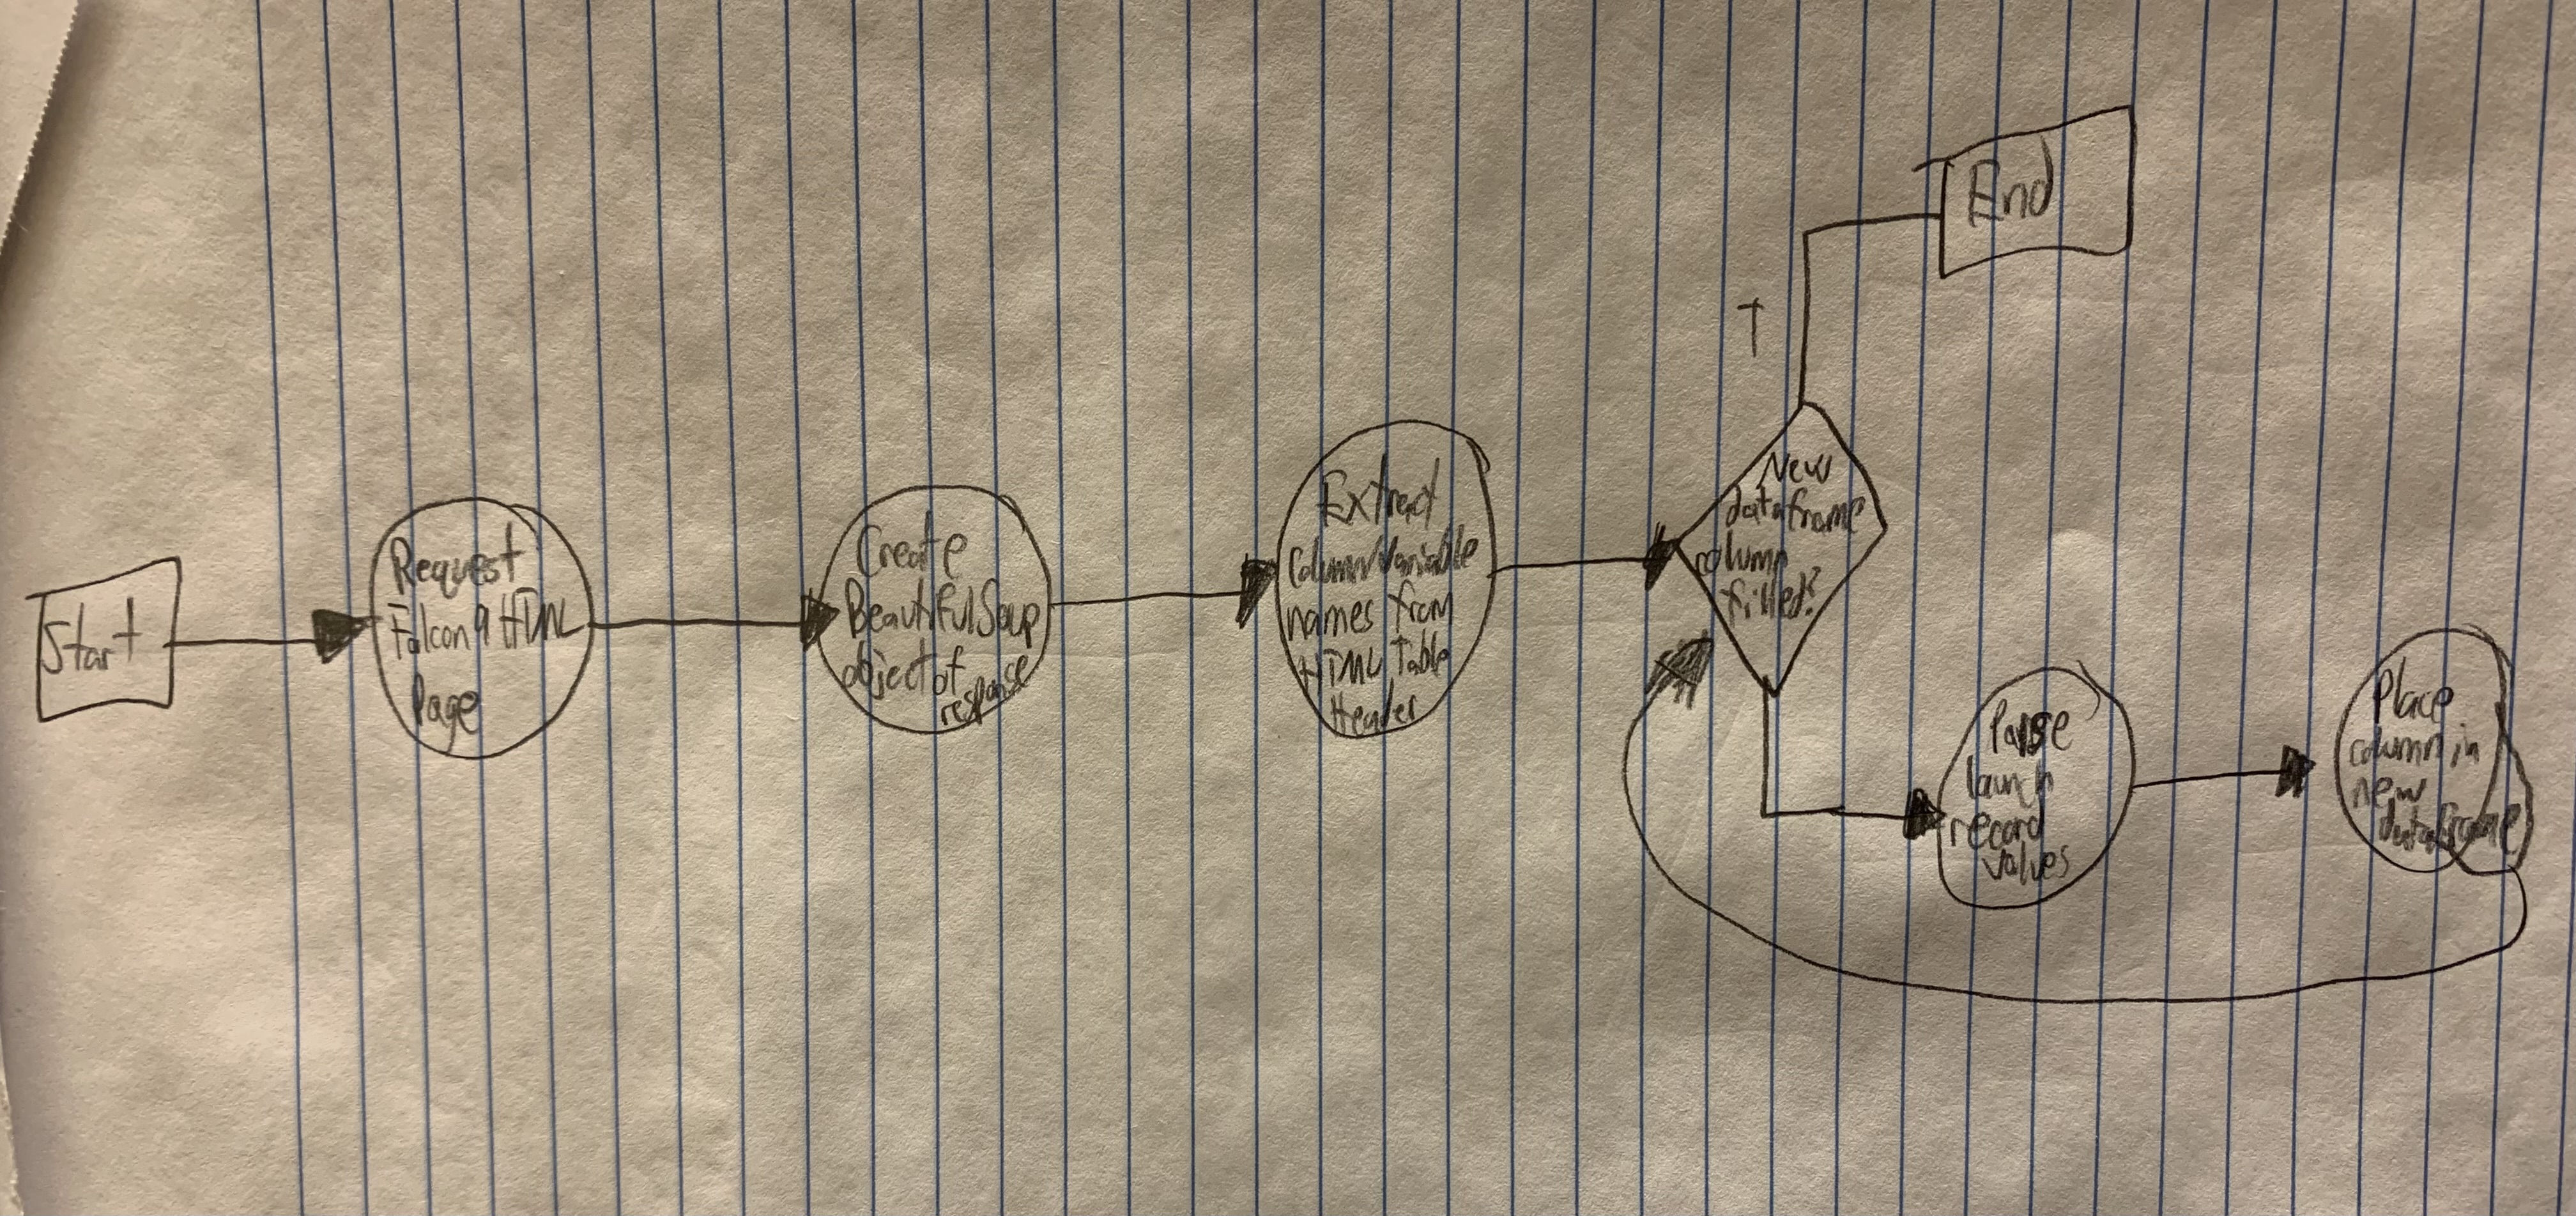 Start
Request
Falcon 9 HTML
Page
Create
BeautifulSoup
object of
response
Extract
Column/Variable
names from
HTML Table
Header
New
dataframe
column
filled?
T
End
Parse
launch
record
values
Place
column in
new
dataframe